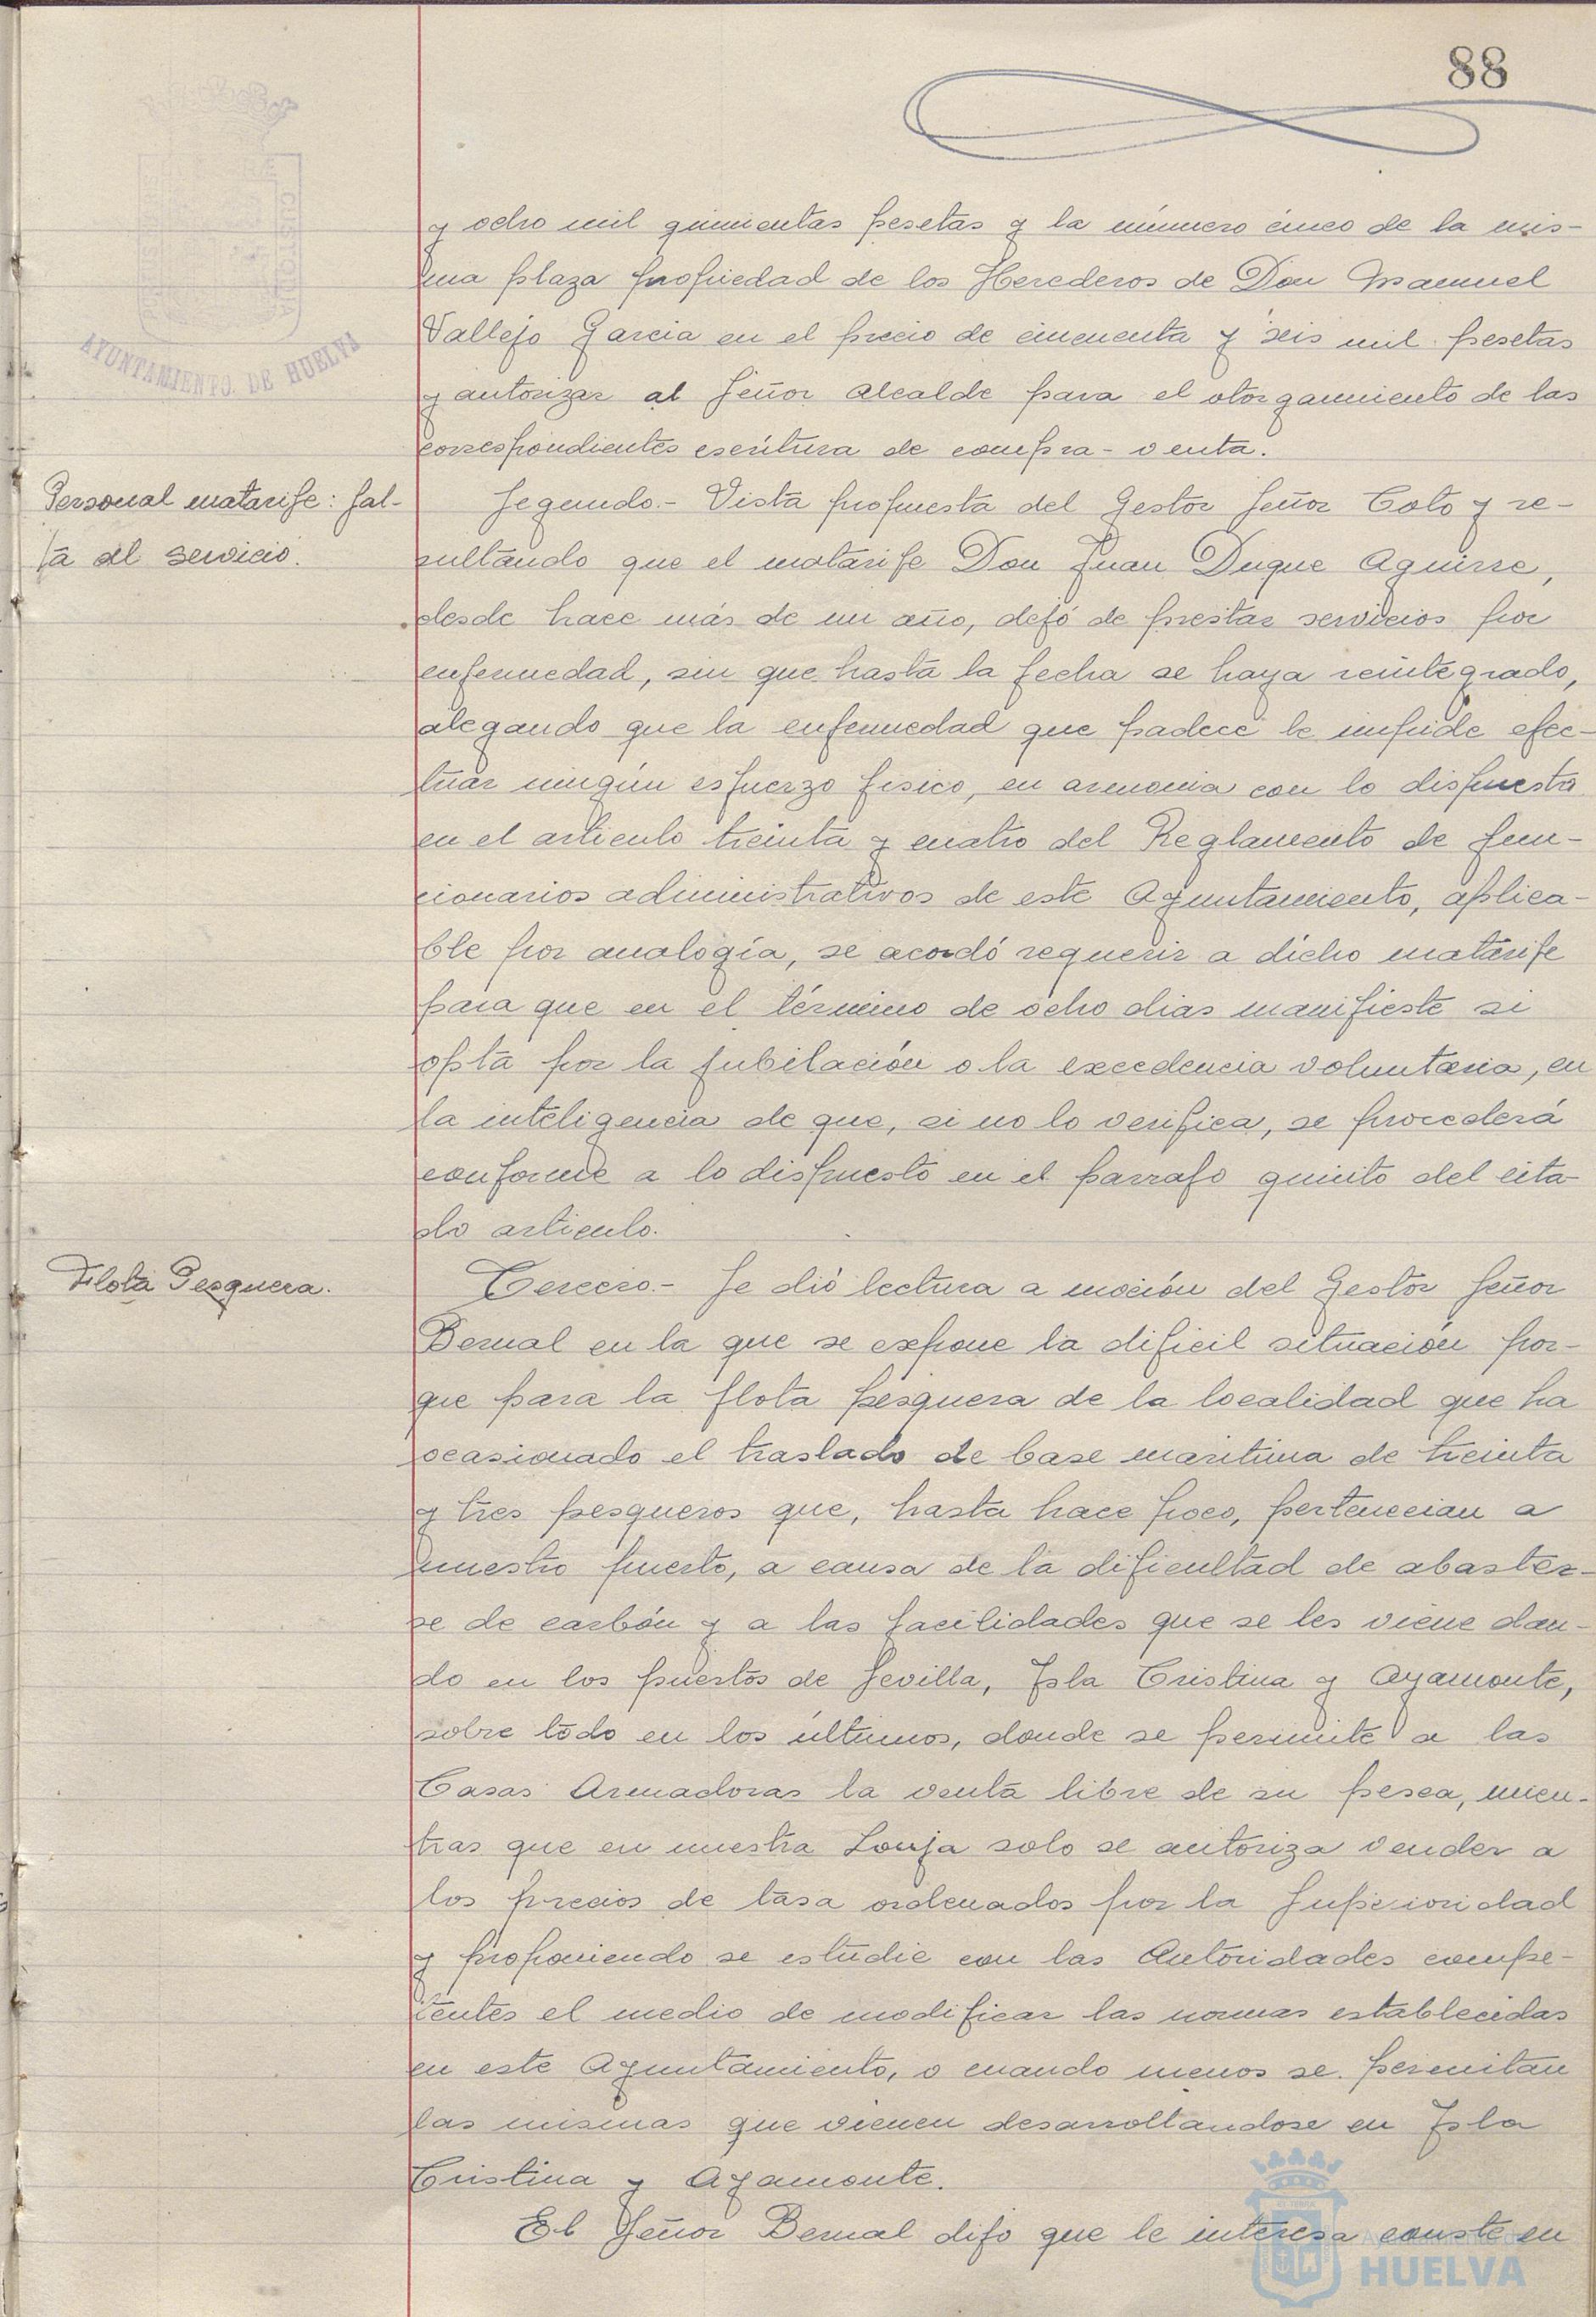 88
AYUNTAMIENTO DE HUELVA
y ocho mil quinientas pesetas y la número cinco de la mis-
ma plaza propiedad de los Herederos de Don Manuel
Vallejo Garcia en el precio de cincuenta y seis mil pesetas
y autorizar al Señor Alcalde para el otorgamiento de las
correspondientes escritura de compra-venta.
Personal matarife: fal-
ta al servicio.
Segundo.- Vista propuesta del Gestor Señor Coto y re-
sultando que el matarife Don Juan Duque Aguirre,
desde hace más de un año, dejó de prestar servicios por
enfermedad, sin que hasta la fecha se haya reintegrado,
alegando que la enfermedad que padece le impide efec-
tuar ningún esfuerzo fisico, en armonia con lo dispuesto
en el articulo treinta y cuatro del Reglamento de fun-
cionarios administrativos de este Ayuntamiento, aplica-
ble por analogía, se acordó requerir a dicho matarife
para que en el término de ocho dias manifieste si
opta por la jubilación o la excedencia voluntaria, en
la inteligencia de que, si no lo verifica, se procederá
conforme a lo dispuesto en el parrafo quinto del cita-
do articulo.
Flota Pesquera.
Tercero.- Se dió lectura a moción del Gestor Señor
Bernal en la que se expone la dificil situación por-
que para la flota pesquera de la localidad que ha
ocasionado el traslado de base maritima de treinta
y tres pesqueros que, hasta hace poco, pertenecian a
nuestro puerto, a causa de la dificultad de abaster-
se de carbón y a las facilidades que se les viene dan-
do en los puertos de Sevilla, Isla Cristina y Ayamonte,
sobre todo en los últimos, donde se permite a las
Casas Armadoras la venta libre de su pesca, mien-
tras que en nuestra Lonja solo se autoriza vender a
los precios de tasa ordenados por la Superioridad
y proponiendo se estudie con las Autoridades compe-
tentes el medio de modificar las normas establecidas
en este Ayuntamiento, o cuando menos se permitan
las mismas que vienen desarrollandose en Isla
Cristina y Ayamonte.
El Señor Bernal dijo que le interesa conste en
HUELVA